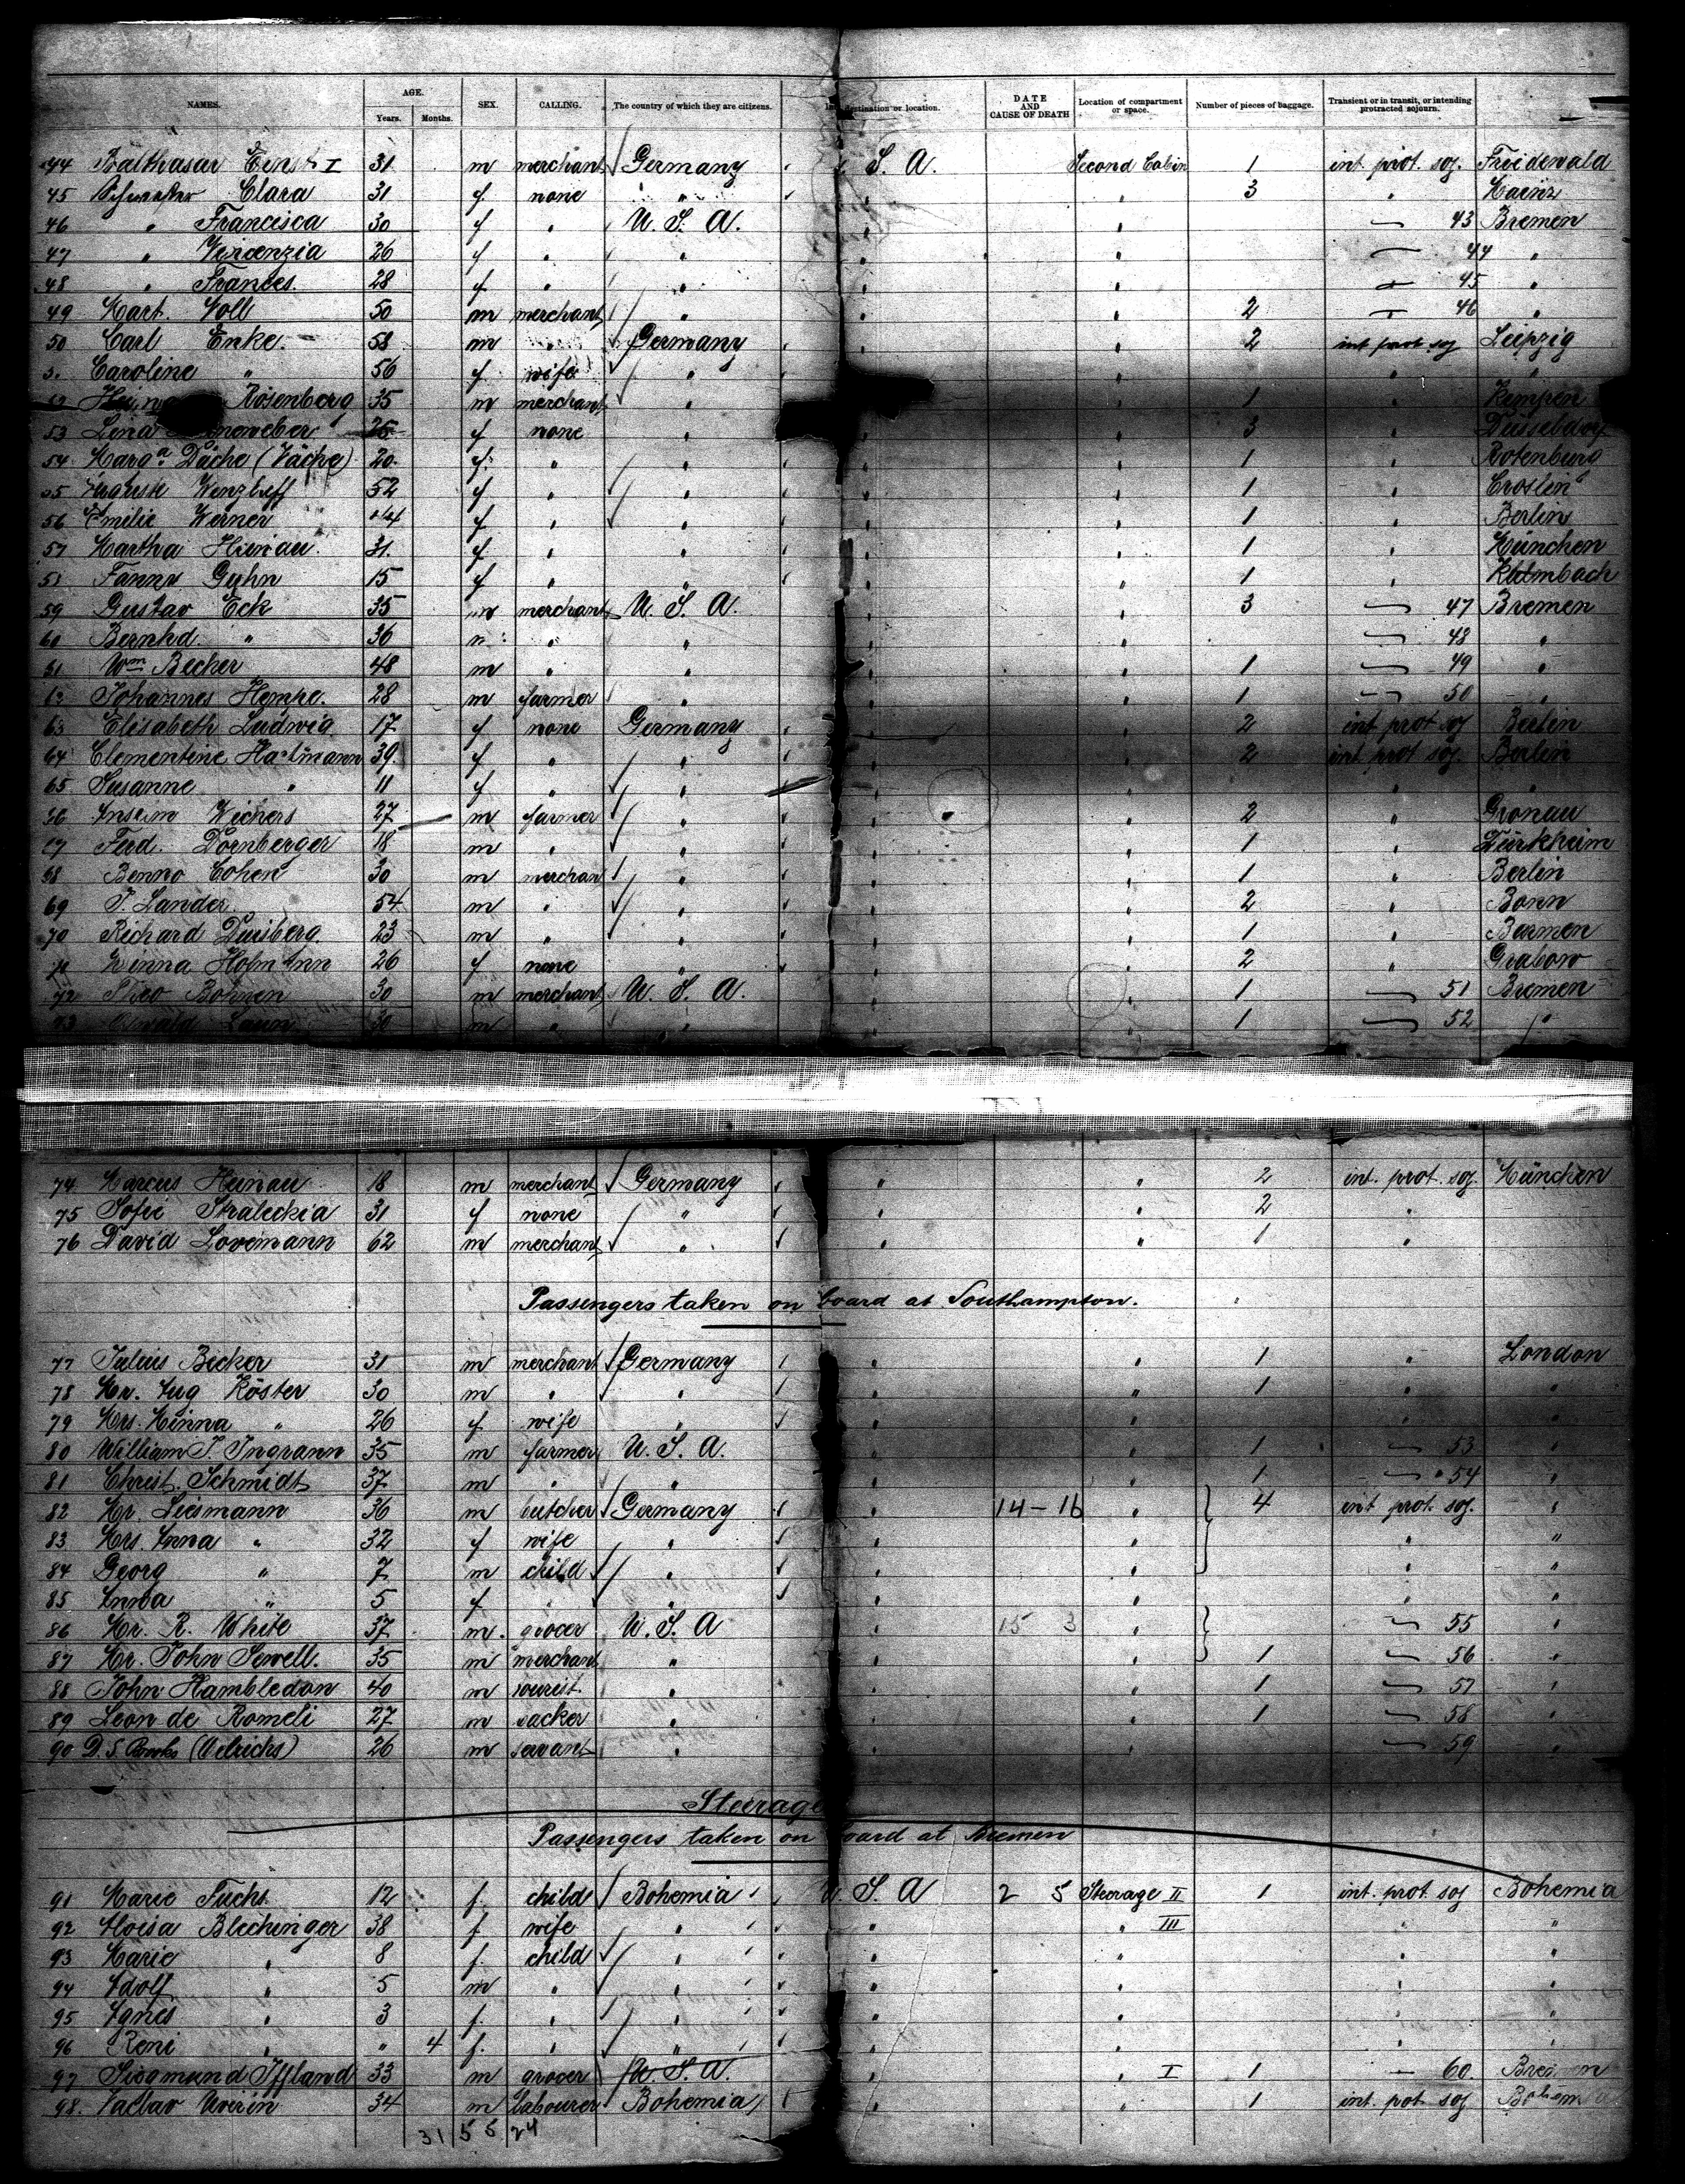 NAMES. AGE. Years. Months. SEX. CALLING. The country of which they are citizens. destination or location. DATE AND CAUSE OF DEATH Location of compartment or space. Number of pieces of baggage. Transient or in transit, or intending protracted sojourn.
44 Balthasar Ernst I 31 m merchant Germany S. A. Second Cabin 1 int. prot. soj. Friedewald
45 Schwester Clara 31 f none " " 3 " Mainz
46 " Francisca 30 f " U. S. A. " " 43 Bremen
47 " Vincenzia 26 f " " " " 44 "
48 " Frances 28 f " " " " 45 "
49 Mart. Noll 50 m merchant " " " 2 46 "
50 Carl Enke 58 m " Germany " " 2 int prot soj Leipzig
Caroline " 56 f wife " " " " "
Rosenberg 35 m merchant " " 1 " Kempen
53 Lina 25 f none " " " 3 " Düsseldorf
54 Marg.a Däche (Väche) 20 f " " " " 1 " Rotenburg
55 Auguste Wenzlaff 52 f " " " " 1 " Croslin
56 Emilie Werner f " " " " 1 " Berlin
57 Martha Heinau 31 f " " " " 1 " München
Fanny Guhn 15 f " " " " 1 " Kulmbach
59 Gustav Eck 35 m merchant U. S. A. " " 3 47 Bremen
60 Bernhd. " 36 m " " " " 48 "
61 Wm Becher 48 m " " " " 1 49 "
62 Johannes Hempe. 28 m farmer " " " 1 50 "
63 Elisabeth Ludwig 17 f none Germany " " 2 int prot soj Berlin
64 Clementine Hartmann 39 f " " " " 2 int. prot soj. Berlin
65 Susanne " 11 f " " " " " "
66 Anselm Wichers 27 m farmer " " " 2 " Gronau
67 Ferd. Dornberger 18 m " " " " 1 " Türkheim
68 Benno Cohen 30 m merchant " " " 1 " Berlin
69 J. Lander 54 m " " " " 2 " Bonn
70 Richard Duisberg. 23 m " " " " 1 " Barmen
71 Minna Hofmann 26 f none " " " 2 " Grabow
72 Theo Bohnen 30 m merchant U. S. A. " " 1 51 Bremen
73 Oswald Laun 30 m " " " " 1 52 "
74 Marcus Heinau 18 m merchant Germany " " 2 int. prot. soj. München
75 Sofie Straleckia 31 f none " " " 2 "
76 David Lovemann 62 m merchant " " " 1 "
Passengers taken on board at Southampton.
77 Julius Becker 31 m merchant Germany " " 1 " London
78 Mr. Aug Köster 30 m " " " " 1 " "
79 Mrs. Minna " 26 f wife " " " " "
80 William J. Ingrann 35 m farmer U. S. A. " " 1 53 "
81 Christ. Schmidt 37 m " " " " 1 54 "
82 Mr. Liesmann 36 m butcher Germany " 14-16 " 4 int prot. soj. "
83 Mrs. Anna " 32 f wife " " " " "
84 Georg " 7 m child " " " " "
85 Anna " 5 f " " " " " "
86 Mr. R. White 37 m. grocer U. S. A " 15 3 " 55 "
87 Mr. John Sewell. 35 m merchant " " " 1 56 "
88 John Hambledon 40 m tourist " " " 1 57 "
89 Leon de Romeli 27 m " " " 1 58 "
90 D. S. Brooks (Oelrichs) 26 m servant " " " 59 "
Steerage
Passengers taken on board at Bremen
91 Marie Fuchs 12 f. child Bohemia U. S. A 2 5 Steerage II 1 int. prot. soj Bohemia
92 Aloisa Blechinger 38 f wife " " " III " "
93 Marie " 8 f. child " " " " "
94 Adolf " 5 m " " " " " "
95 Agnes " 3 f. " " " " " "
96 Reni " " 4 f. " " " " " "
97 Siegmund Iffland 33 m grocer U. S. A. " " I 1 60. Bremen
98. Vaclav 34 m labourer Bohemia " " 1 int. prot. soj Bohemia
31 55 24